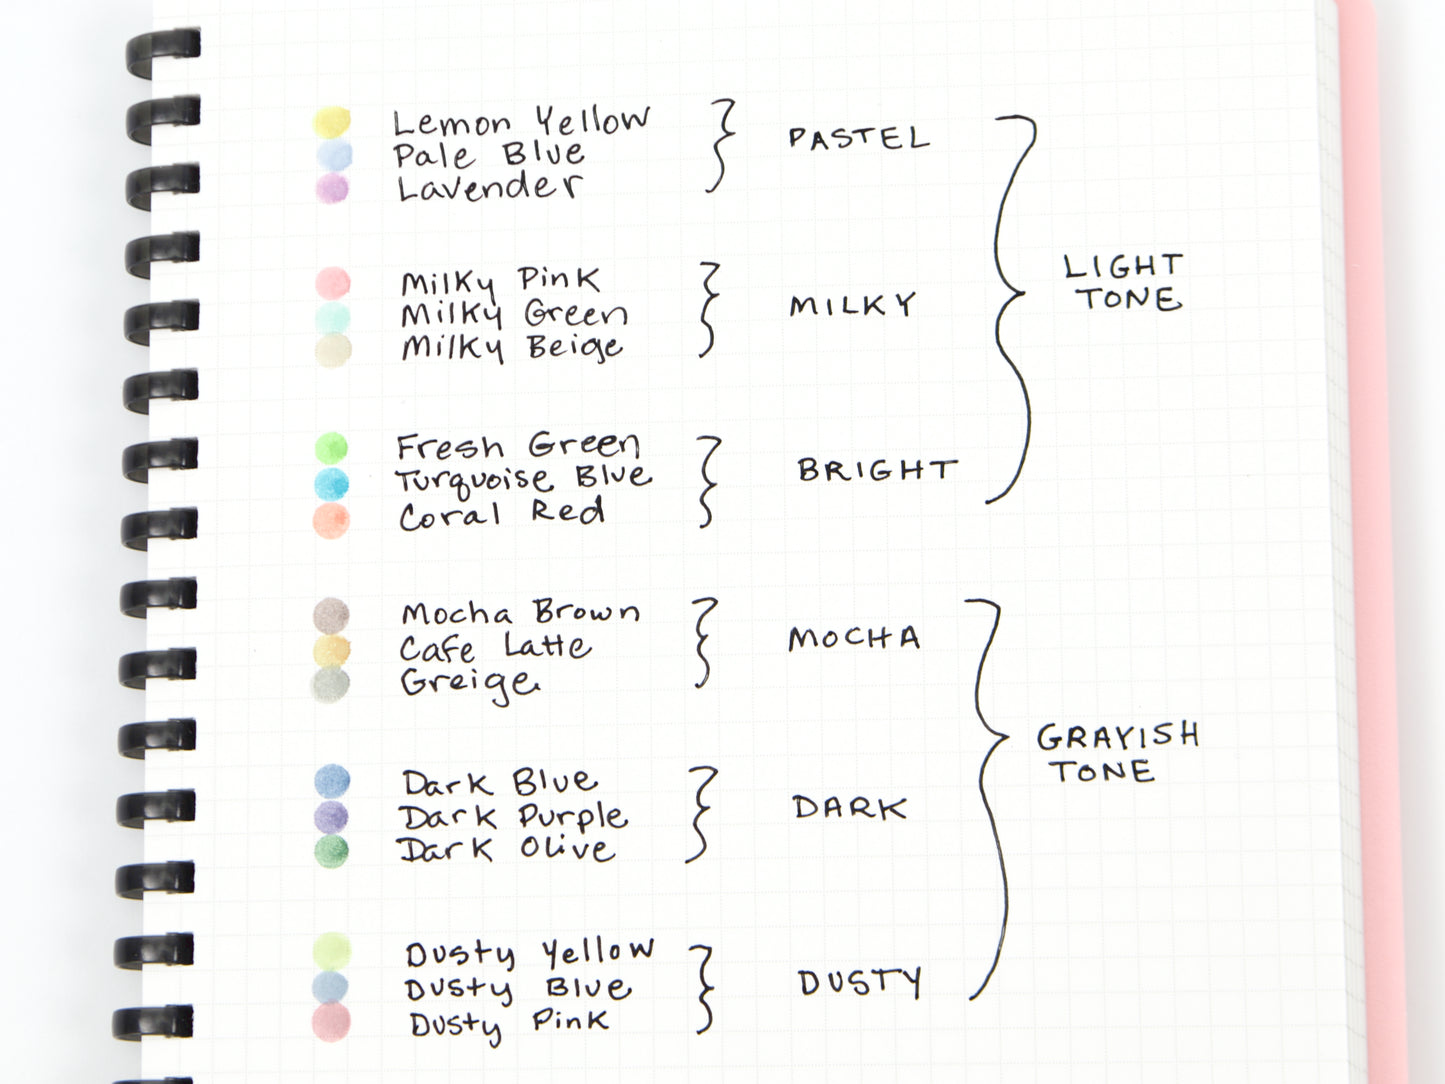 Lemon Yellow
Pale Blue
Lavender
PASTEL
Milky Pink
Milky Green
Milky Beige
MILKY
LIGHT
TONE
Fresh Green
Turquoise Blue
Coral Red
BRIGHT
Mocha Brown
Cafe Latte
Greige
MOCHA
Dark Blue
Dark Purple
Dark Olive
DARK
GRAYISH
TONE
Dusty Yellow
Dusty Blue
Dusty Pink
DUSTY